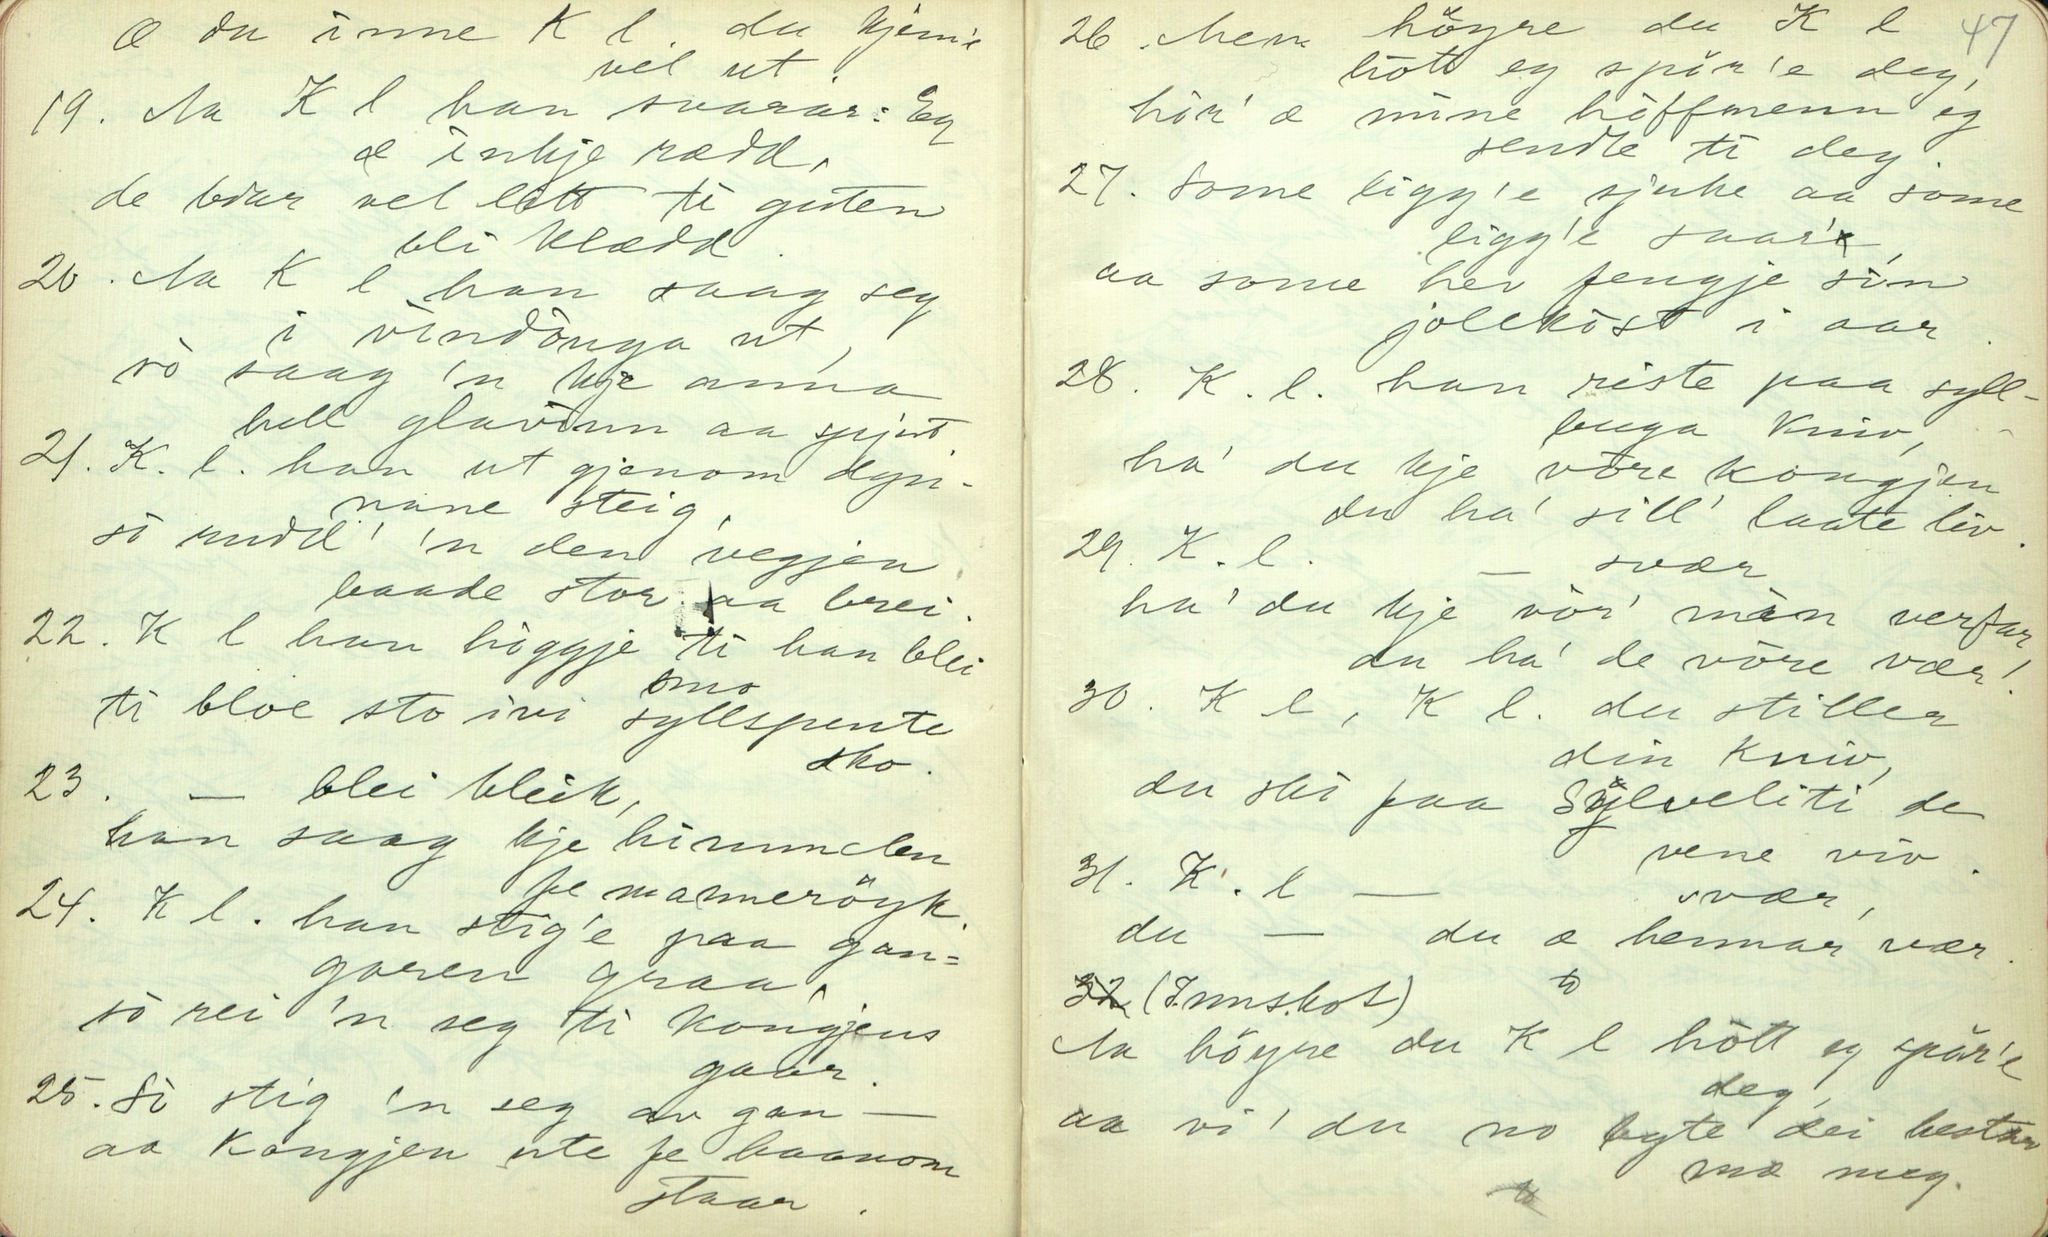 æ du inne K l. du kjem'e
vel ut.
19. Aa K l han svarar: Eg
æ inkje rædd,
de bær vel lett ti guten
bli klædd.
20. Aa K l han saag seg
i vindauga ut,
so saag 'n kje anna
hell glavinn aa spjut
21. K. l. han ut gjenom dyri-
nane steig,
so rudd' 'n den vegjen
baade stor aa brei.
22. K l han höggje ti han blei
mo
ti bloe sto ivi syllspente
sko.
23. — blei bleik,
han saag kje himmelen
fe manneröyk.
24. K l. han stig'e paa gan=
garen graa,
so rei 'n seg ti kongjens
gaar.
25. So stig 'n seg av gan —
aa kongjen ute fe haanom
staar.
47
26. Men höyre du K l
hott eg spör'e deg,
hor' æ mine hoffmenn eg
sendte ti deg.
27. Some ligg'e sjuke aa some
ligg'e saar'e,
aa some hev fengje sin
jolekost i aar.
28. K. l. han riste paa syll-
buga kniv,
ha' du kje vöre kongjen
du ha' sill' laate liv.
29. K. l. — svær
ha' du kje vör' min verfar
du ha' de vöre vær!
30. K l, K l. du stiller
din kniv,
du ski faa Sylveliti de
vene viv.
31. K. l — svær,
du — du æ hennar vær.
32 (Innskot)
Aa höyre du K l hott eg spör'e
deg,
aa vi' du no byte dei hestar
mæ meg.